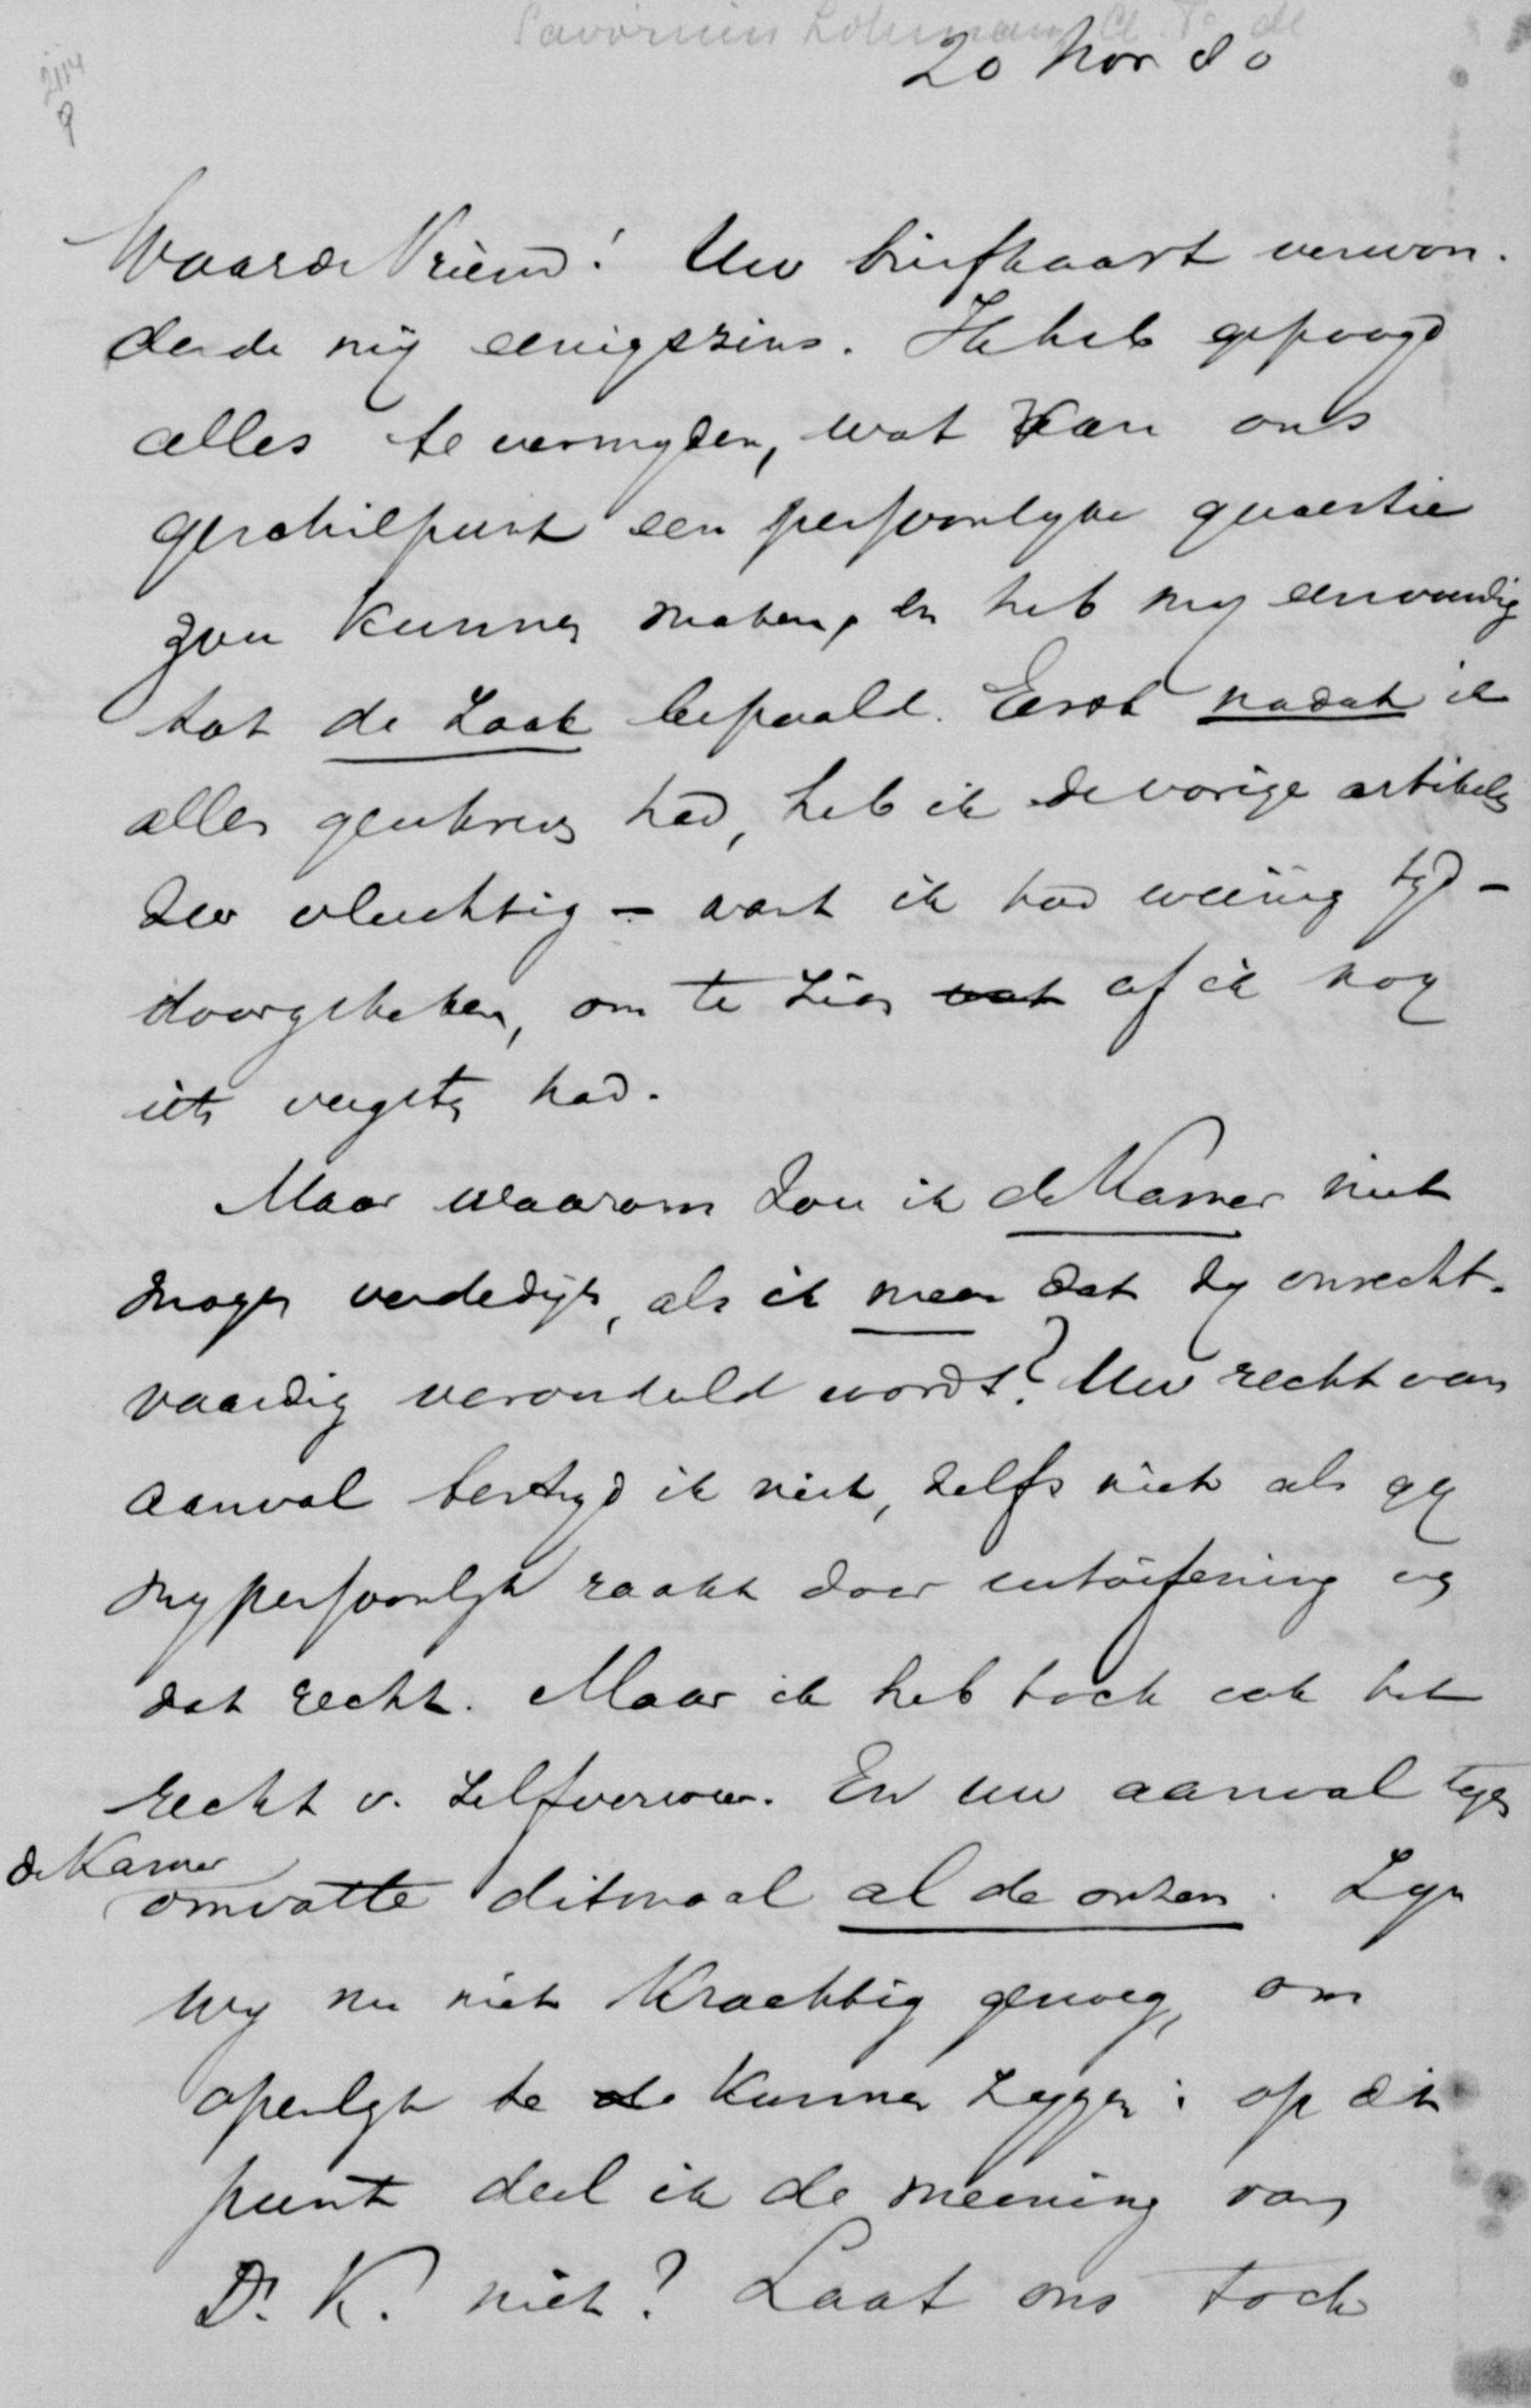 Savornin Lohman, de
20 Nov 80
2114
9
Waarde Vriend! Uw briefkaart verwon-
derde mij eenigszins. Ik heb gepoogd
alles te vermyden, wat van ons
geschilpunt een persoonlyke quaestie
zou kunnen maken, en heb my eenvoudig
tot de zaak bepaald. Eerst nadat ik
alles geschreven had, heb ik de vorige artikels
zeer vluchtig – want ik had weinig tyd –
doorgekeken, om te zien wat of ik nog
iets vergeten had.
Maar waarom zou ik de Kamer niet
mogen verdedigen, als ik meen dat zy onrecht-
vaardig veroordeeld wordt? Uw recht van
aanval bestryd ik niet, zelfs niet als gy
my persoonlyk raakt door uitoefening van
dat recht. Maar ik heb toch ook het
recht v. zelfverweer. En uw aanval tegen
de Kamer
omvatte ditmaal al de onzen. Zyn
wy nu niet krachtig genoeg, om
openlyk te kunnen zeggen: op dit
punt deel ik de meening van
Dr. K. niet? Laat ons toch